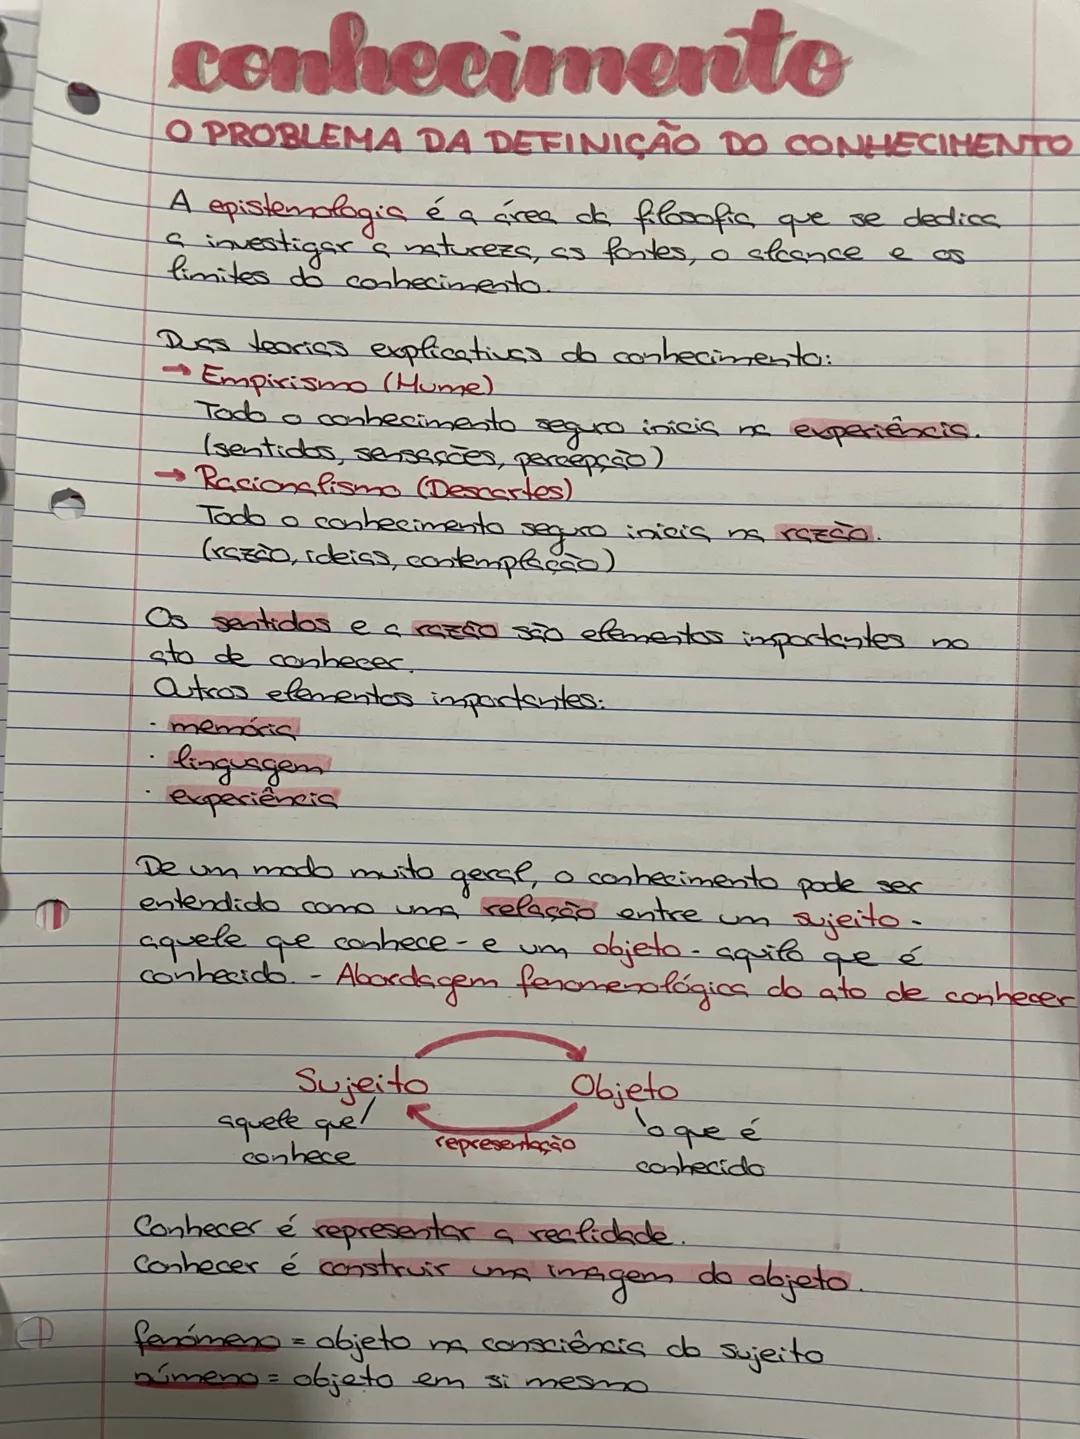 conhecimento
O PROBLEMA DA DEFINIÇÃO DO CONHECIMENTO
A epistemologia é a área da filosofia que se dedica
a investigar a natureza, as fontes, o alcance e os
limites do conhecimento.
Duas teorias explicativas do conhecimento:
→ Empirismo (Hume)
Todo o conhecimento seguro inicia na experiência.
(sentidos, sensações, percepção)
→ Racionalismo (Descartes)
Todo o conhecimento seguro inicia na razão.
(razão, ideias, contemplação)
Os sentidos e a razão são elementos importantes no
ato de conhecer.
Outros elementos importantes:
· memória
· linguagem
· experiência
De um modo muito geral, o conhecimento pode ser
entendido como uma relação entre um sujeito -
aquele que conhece - e um objeto - aquilo que é
conhecido. - Abordagem fenomenológica do ato de conhecer
Sujeito Objeto
aquele que o que é
representação
conhece conhecido
Conhecer é representar a realidade.
Conhecer é construir uma imagem do objeto.
fenómeno = objeto na consciência do sujeito
númeno = objeto em si mesmo